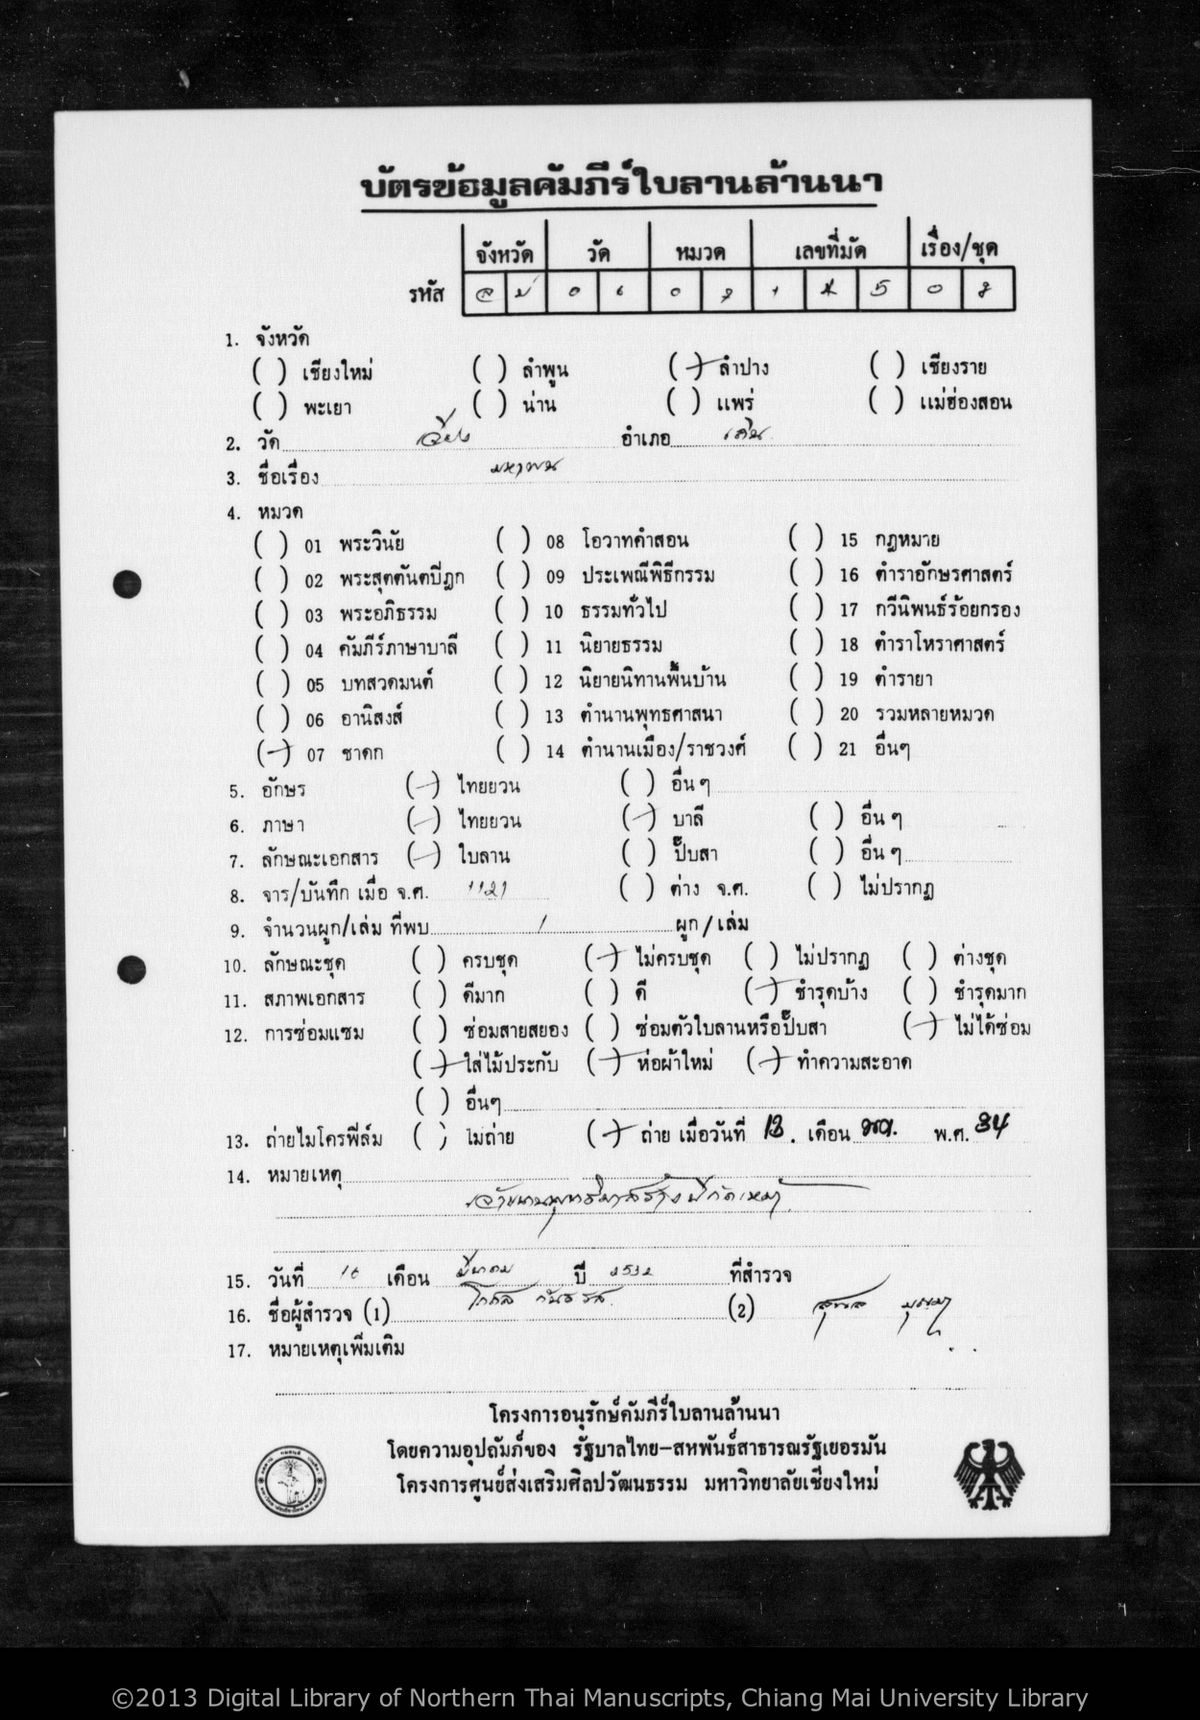 บัตรข้อมูลคัมภีร์ใบลานล้านนา
จังหวัด วัด หมวด เลขที่มัด เรื่อง/ชุด
รหัส ลป 0 0 5 0
1. จังหวัด
( ) เชียงใหม่ ( ) ลำพูน (/) ลำปาง ( ) เชียงราย
( ) พะเยา ( ) น่าน ( ) แพร่ ( ) แม่ฮ่องสอน
2. วัด เวียง อำเภอ เถิน
3. ชื่อเรื่อง
4. หมวด
( ) 01 พระวินัย ( ) 08 โอวาทคำสอน ( ) 15 กฎหมาย
( ) 02 พระสุตตันตปิฎก ( ) 09 ประเพณีพิธีกรรม ( ) 16 ตำราอักษรศาสตร์
( ) 03 พระอภิธรรม ( ) 10 ธรรมทั่วไป ( ) 17 กวีนิพนธ์ร้อยกรอง
( ) 04 คัมภีร์ภาษาบาลี ( ) 11 นิยายธรรม ( ) 18 ตำราโหราศาสตร์
( ) 05 บทสวดมนต์ ( ) 12 นิยายนิทานพื้นบ้าน ( ) 19 ตำรายา
( ) 06 อานิสงส์ ( ) 13 ตำนานพุทธศาสนา ( ) 20 รวมหลายหมวด
(/) 07 ชาดก ( ) 14 ตำนานเมือง/ราชวงศ์ ( ) 21 อื่นๆ
5. อักษร (/) ไทยยวน ( ) อื่น ๆ
6. ภาษา (/) ไทยยวน (/) บาลี ( ) อื่น ๆ
7. ลักษณะเอกสาร (/) ใบลาน ( ) ปั๊บสา ( ) อื่น ๆ
8. จาร/บันทึก เมื่อ จ.ศ. 1121 ( ) ต่าง จ.ศ. ( ) ไม่ปรากฏ
9. จำนวนผูก/เล่ม ที่พบ 1 ผูก/เล่ม
10. ลักษณะชุด ( ) ครบชุด (/) ไม่ครบชุด ( ) ไม่ปรากฏ ( ) ต่างชุด
11. สภาพเอกสาร ( ) ดีมาก ( ) ดี (/) ชำรุดบ้าง ( ) ชำรุดมาก
12. การซ่อมแซม ( ) ซ่อมสายสยอง ( ) ซ่อมตัวใบลานหรือปั๊บสา (/) ไม่ได้ซ่อม
(/) ใส่ไม้ประกับ (/) ห่อผ้าใหม่ (/) ทำความสะอาด
( ) อื่นๆ
13. ถ่ายไมโครฟิล์ม ( ) ไม่ถ่าย (/) ถ่าย เมื่อวันที่ 13. เดือน พ.ศ. 34
14. หมายเหตุ
15. วันที่ 16 เดือน มีนาคม ปี 2532 ที่สำรวจ
16. ชื่อผู้สำรวจ (1) (2)
17. หมายเหตุเพิ่มเติม
โครงการอนุรักษ์คัมภีร์ใบลานล้านนา
โดยความอุปถัมภ์ของ รัฐบาลไทย-สหพันธ์สาธารณรัฐเยอรมัน
โครงการศูนย์ส่งเสริมศิลปวัฒนธรรม มหาวิทยาลัยเชียงใหม่
©2013 Digital Library of Northern Thai Manuscripts, Chiang Mai University Library